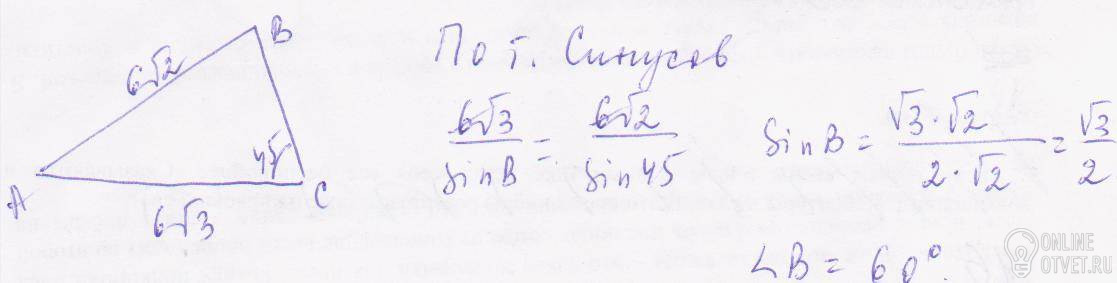 B
6√2
45°
A
C
6√3
По т. Синусов
6√3/sinB = 6√2/sin45
SinB = √3·√2/2·√2 = √3/2
∠B = 60°.
ONLINE
OTVET.RU